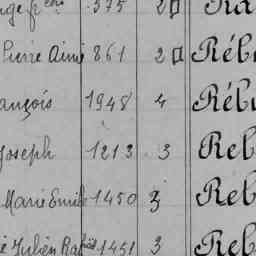 375 2
Pierre Aimé 861 2 Réb
ançois 1948 4 Réb
Joseph 1213 3 Reb
Marie Emile 1450 3 Reb
Julien Ra 1451 3 Reb